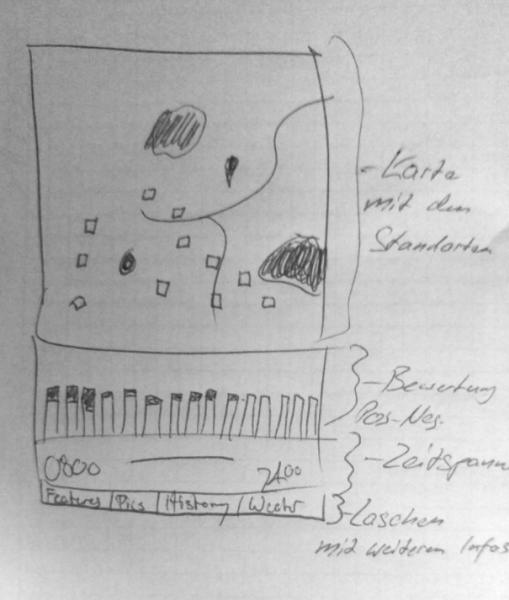 - Karte
mit den
Standorten
- Bewertung
Pos-Neg.
0800
2400
- Zeitspann
Features | Pics | History |
- Laschen
mit weiteren Infos